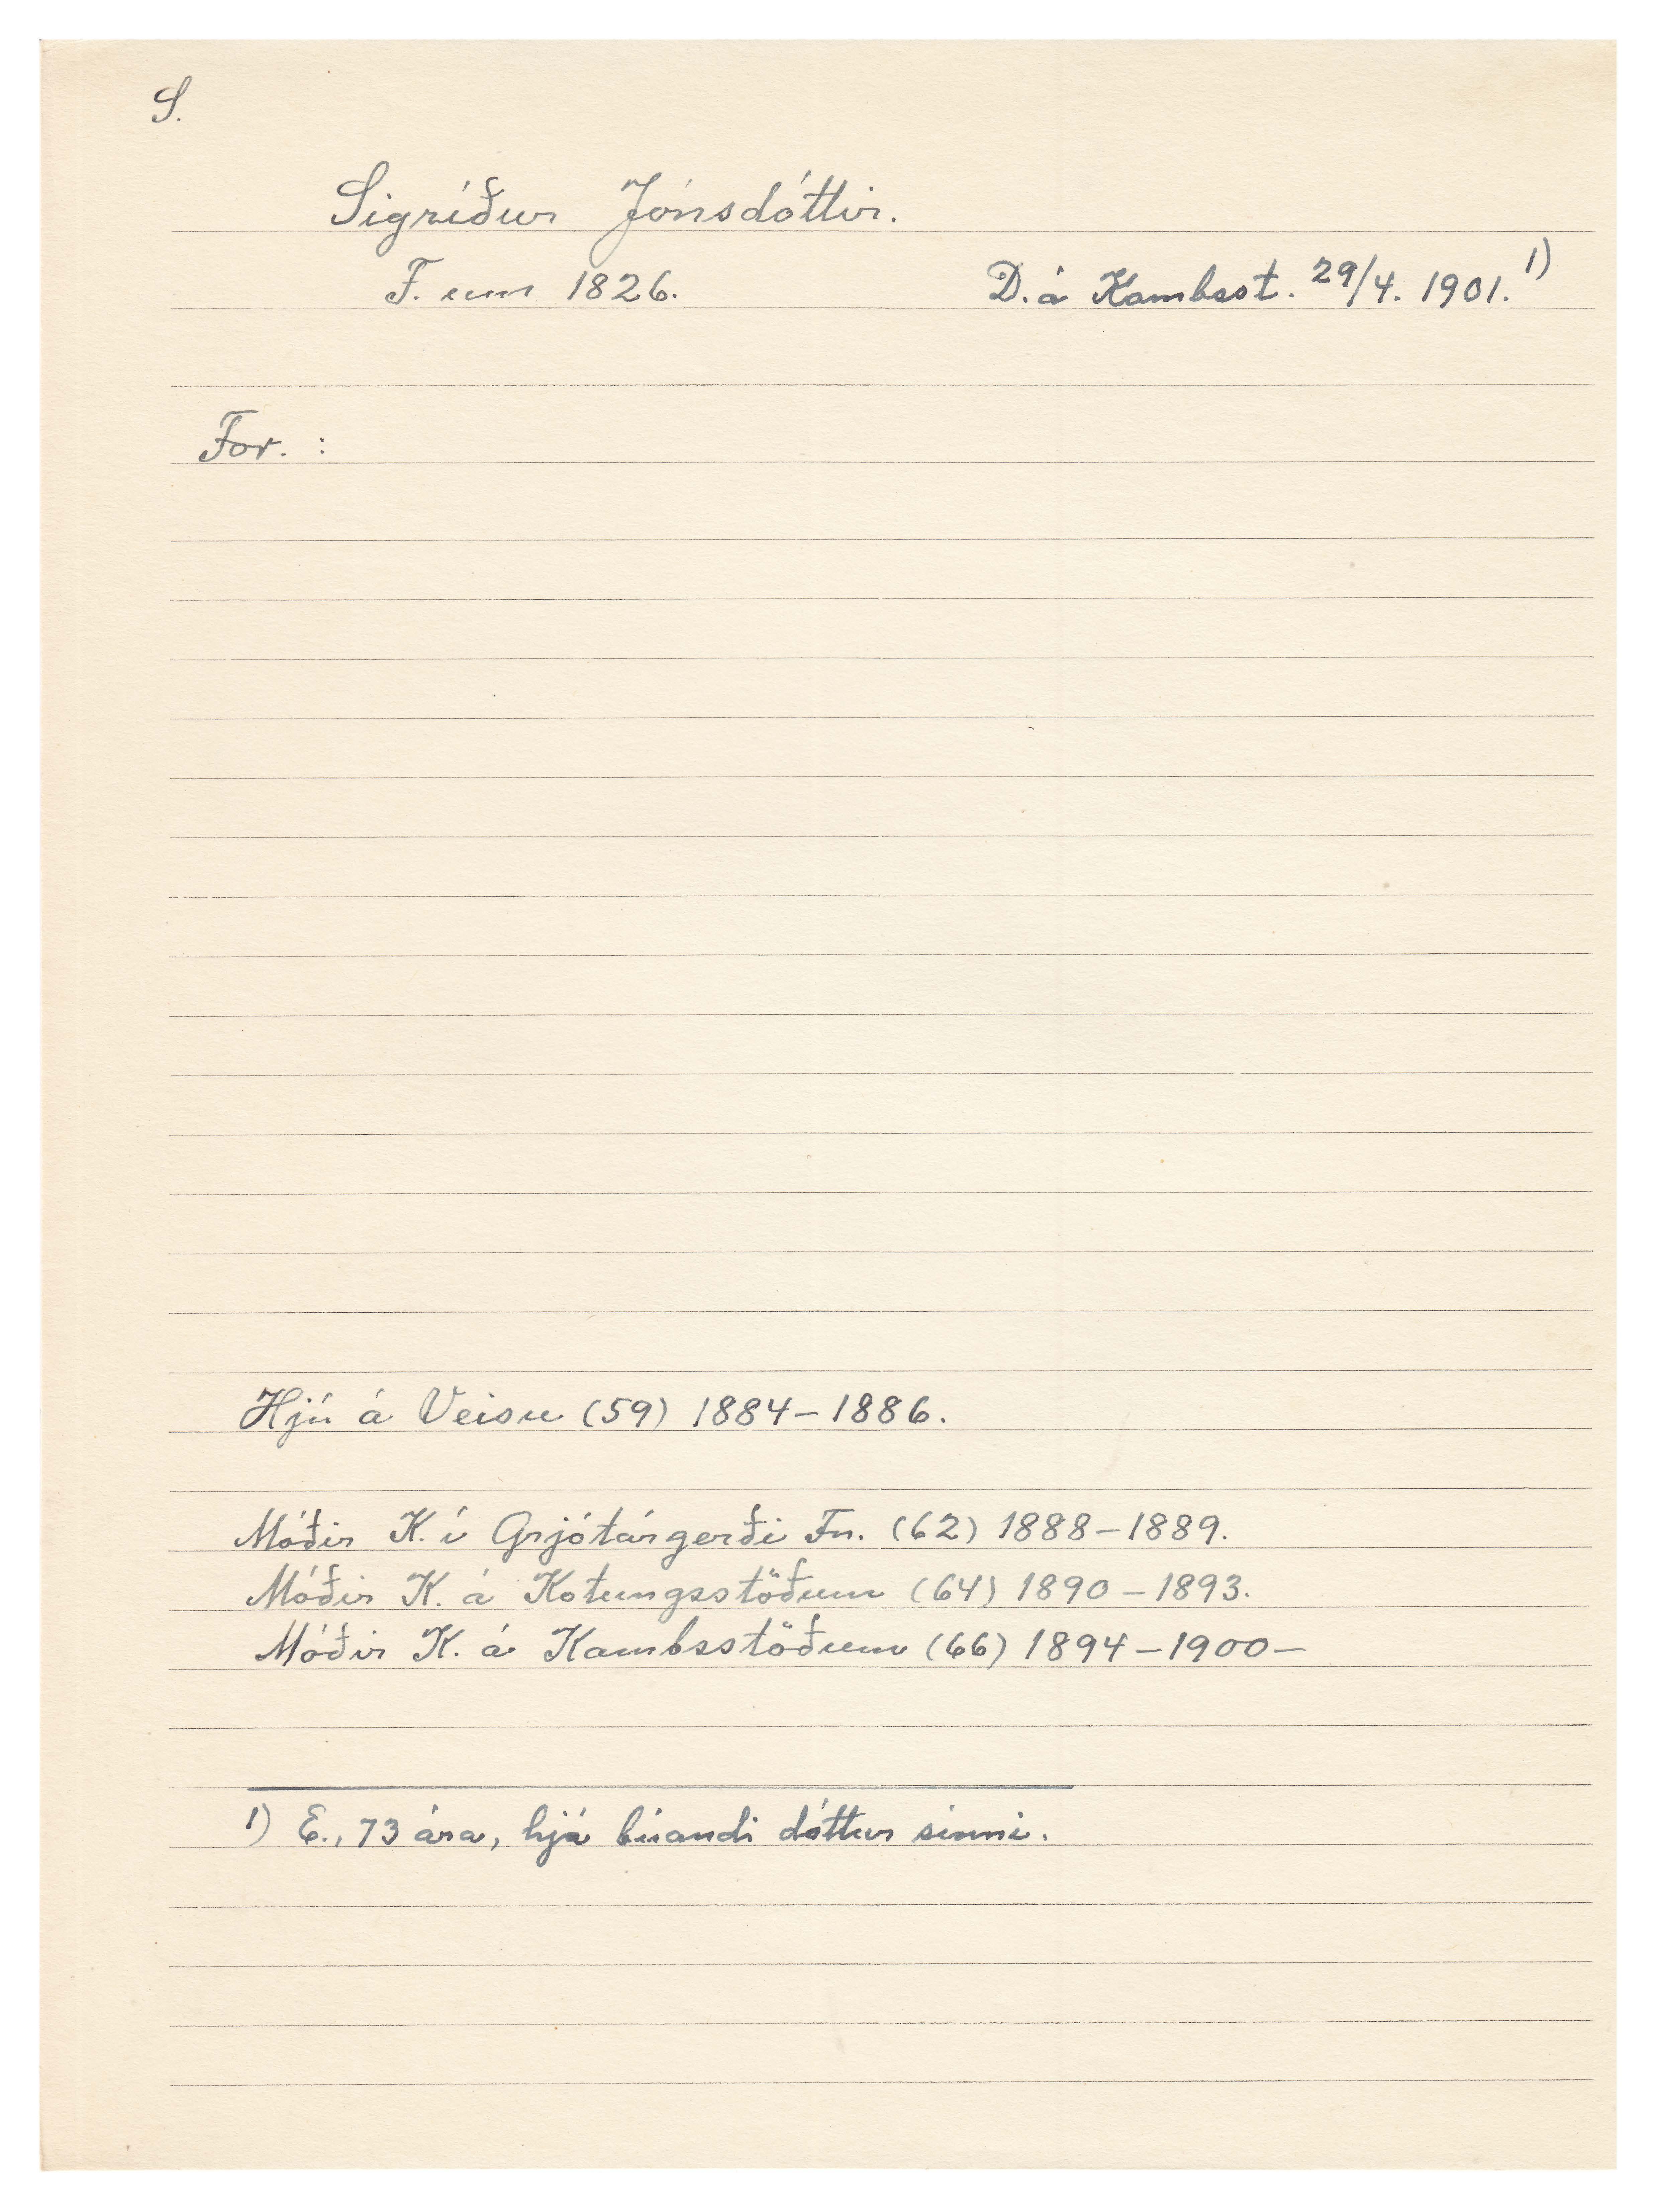 S.
Sigríður Jónsdóttir.
F. um 1826. D. á Kambsst. 29/4. 1901. 1)
For. :
Hjú á Veisu (59) 1884-1886.
Móðir K. í Grjótárgerði Fn. (62) 1888-1889.
Móðir K. á Kotungsstöðum (64) 1890-1893.
Móðir K. á Kambsstöðum (66) 1894-1900-
1) E., 73 ára, hjá búandi dóttur sinni.